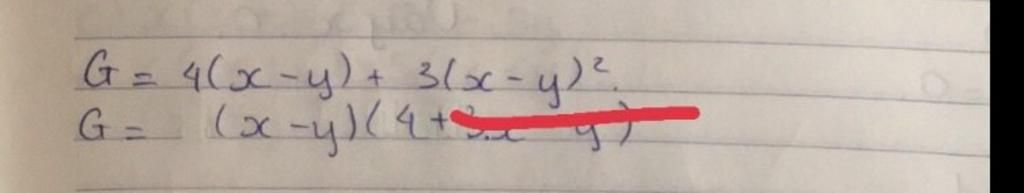 G = 4(x-y) + 3(x-y)².
G = (x-y)(4+